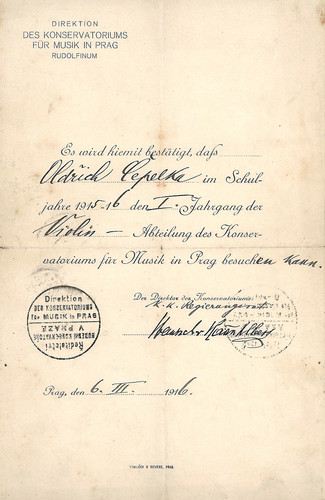 DIREKTION
DES KONSERVATORIUMS
FÜR MUSIK IN PRAG
RUDOLFINUM
Es wird hiemit bestätigt, daß
Oldřich Čepelka im Schul-
jahre 1915-16 den I. Jahrgang der
Violin – Abteilung des Konser-
vatoriums für Musik in Prag besuchen kann.
Der Direktor des Konservatoriums:
k. k. Regierungsrat
Direktion
DES KONSERVATORIUMS
für MUSIK in PRAG
Ředitelství
V PRAZE
Prag, den 6. III. 1916